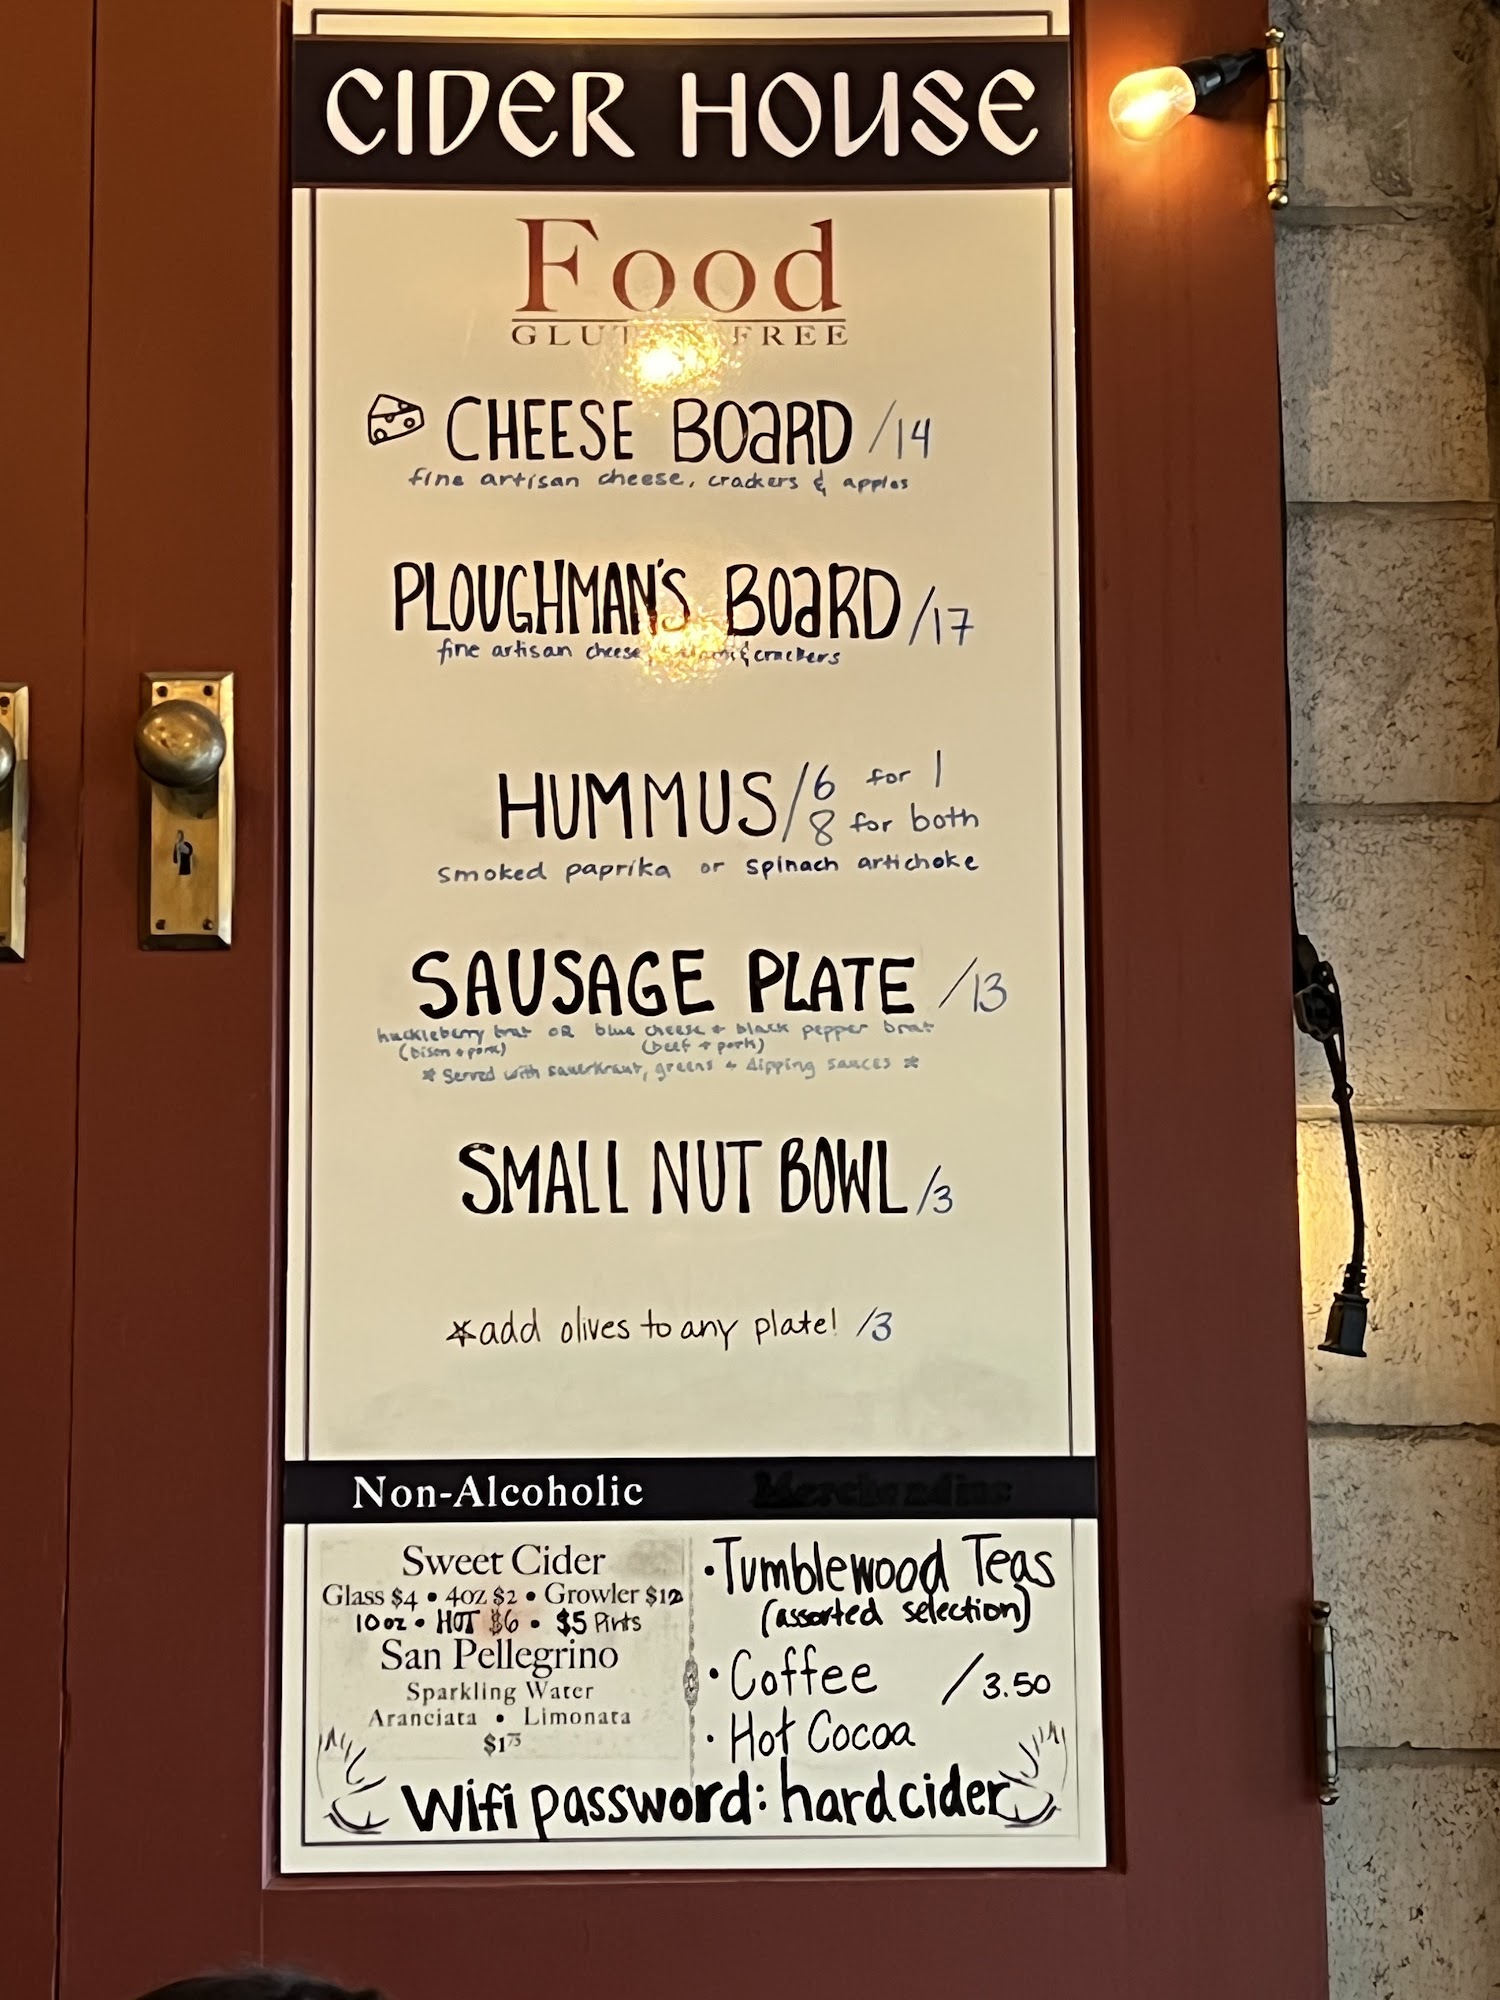 CIDER HOUSE
Food
GLUTEN FREE
CHEESE BOARD /14
fine artisan cheese, crackers & apples
PLOUGHMAN'S BOARD /17
fine artisan cheese, & crackers
HUMMUS / 6 for 1
8 for both
smoked paprika or spinach artichoke
SAUSAGE PLATE /13
huckleberry brat OR blue cheese + black pepper brat
(bison + pork) (beef + pork)
* Served with sauerkraut, greens + dipping sauces *
SMALL NUT BOWL /3
*add olives to any plate! /3
Non-Alcoholic Merchandise
Sweet Cider
Glass $4 • 4oz $2 • Growler $12
10oz • HOT $6 • $5 Pints
San Pellegrino
Sparkling Water
Aranciata • Limonata
$1.75
• Tumblewood Teas
(assorted selection)
• Coffee /3.50
• Hot Cocoa
Wifi password: hardcider